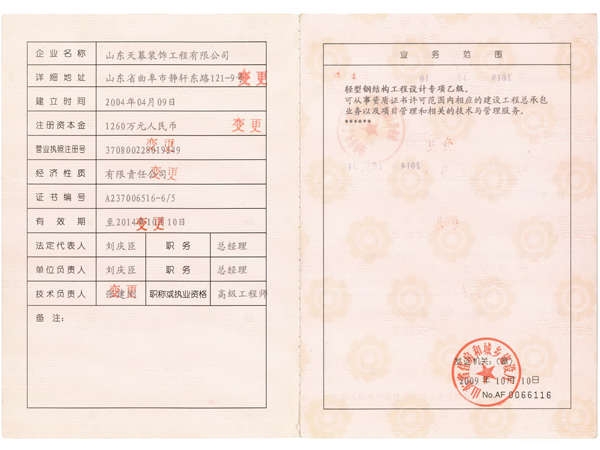 企业名称 山东天幕装饰工程有限公司
详细地址 山东省曲阜市静轩东路121-9 变更
建立时间 2004年04月09日
注册资本金 1260万元人民币 变更
营业执照注册号 370800228019849 变更
经济性质 有限责任公司 变更
证书编号 A237006516-6/5
有效期 至2014年10月10日 变更
法定代表人 刘庆臣 职务 总经理
单位负责人 刘庆臣 职务 总经理
技术负责人 变更 职称或执业资格 高级工程师
备注：
业务范围
轻型钢结构工程设计专项乙级。
可从事资质证书许可范围内相应的建设工程总承包
业务以及项目管理和相关的技术与管理服务。
*******
发证机关：(章)
2009年10月10日
No.AF 0066116